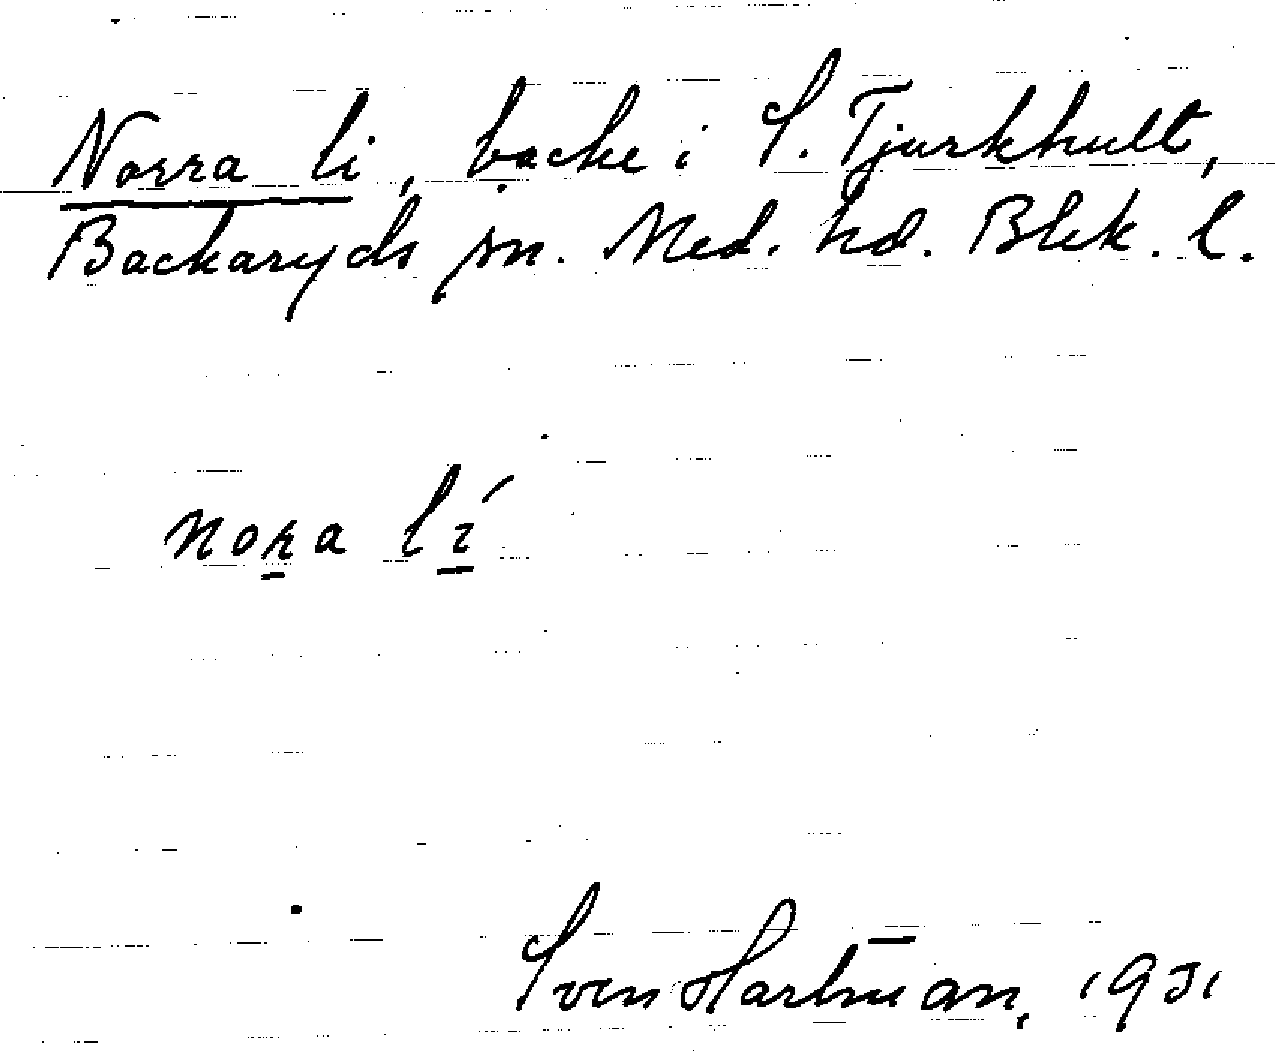 Norra li, backe i S. Tjurkhult,
Backaryds sn. Med. hd. Blek. l.
nora lí
Sven Hartman, 1931